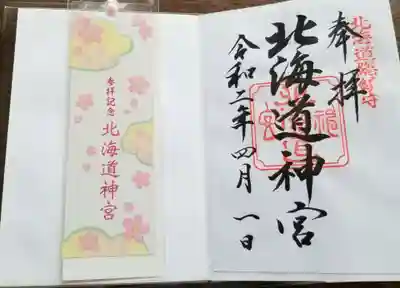 北海道総鎮守
奉拝
北海道神宮
令和二年四月一日
参拝記念 北海道神宮